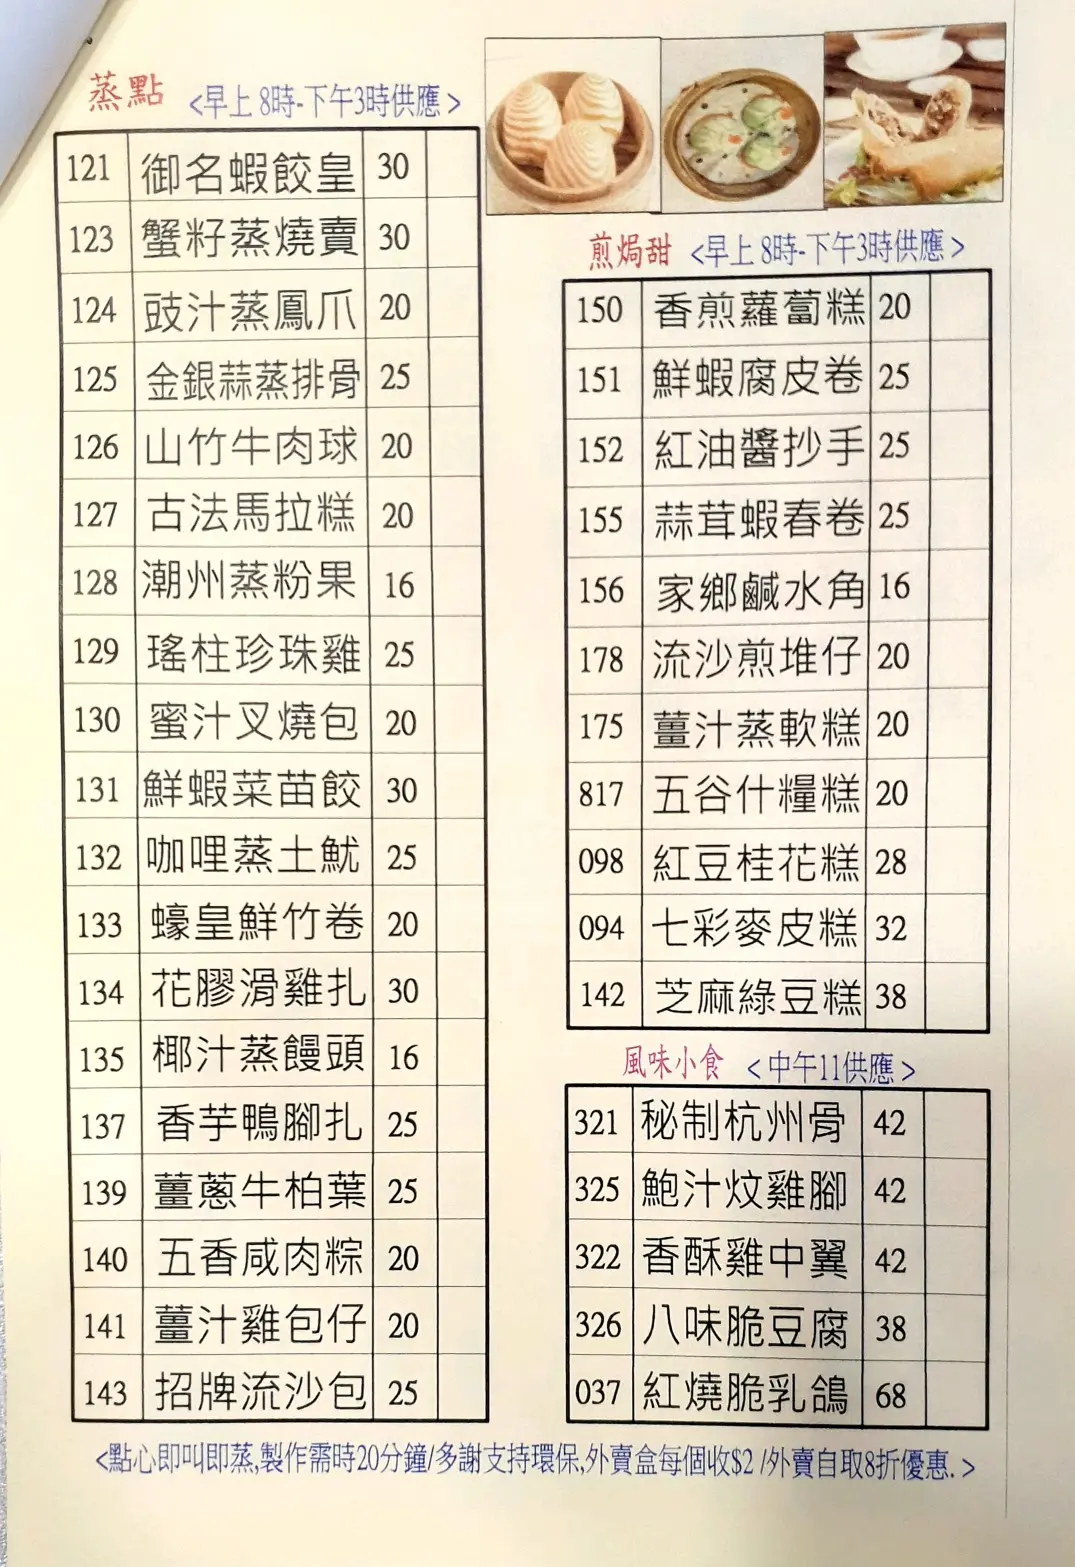 蒸點 <早上 8時-下午3時供應>
121 御名蝦餃皇 30
123 蟹籽蒸燒賣 30
124 豉汁蒸鳳爪 20
125 金銀蒜蒸排骨 25
126 山竹牛肉球 20
127 古法馬拉糕 20
128 潮州蒸粉果 16
129 瑤柱珍珠雞 25
130 蜜汁叉燒包 20
131 鮮蝦菜苗餃 30
132 咖哩蒸土魷 25
133 蠔皇鮮竹卷 20
134 花膠滑雞扎 30
135 椰汁蒸饅頭 16
137 香芋鴨腳扎 25
139 薑蔥牛柏葉 25
140 五香咸肉粽 20
141 薑汁雞包仔 20
143 招牌流沙包 25
煎焗甜 <早上 8時-下午3時供應>
150 香煎蘿蔔糕 20
151 鮮蝦腐皮卷 25
152 紅油醬抄手 25
155 蒜茸蝦春卷 25
156 家鄉鹹水角 16
178 流沙煎堆仔 20
175 薑汁蒸軟糕 20
817 五谷什糧糕 20
098 紅豆桂花糕 28
094 七彩麥皮糕 32
142 芝麻綠豆糕 38
風味小食 <中午11供應>
321 秘制杭州骨 42
325 鮑汁炆雞腳 42
322 香酥雞中翼 42
326 八味脆豆腐 38
037 紅燒脆乳鴿 68
<點心即叫即蒸,製作需時20分鐘/多謝支持環保,外賣盒每個收$2 /外賣自取8折優惠. >